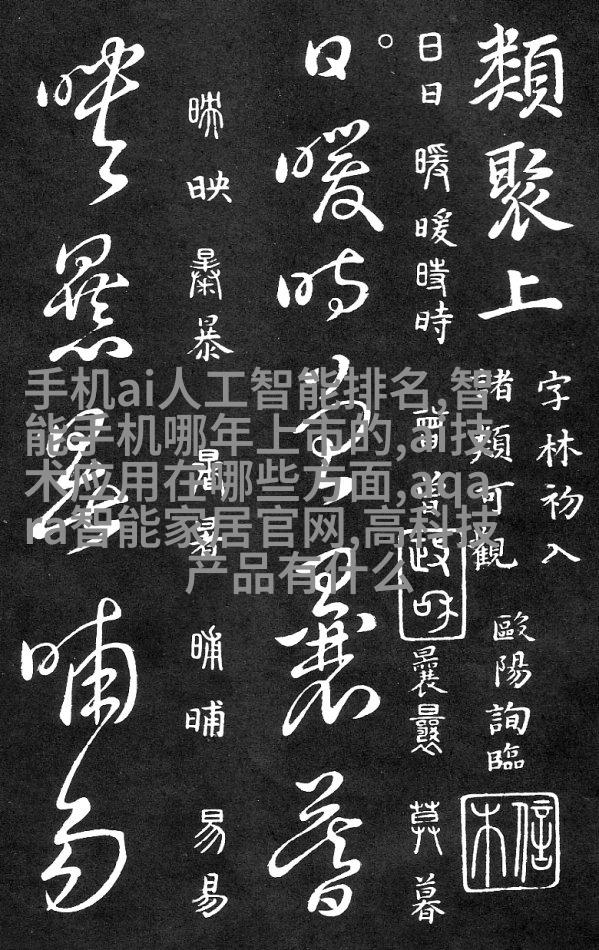 類聚上
字林初入
諸類可觀
歐陽詢臨
信本
日日 暖暖 時時 曾曾 曩曩 暮暮
政和
日暖時曾曩暮
映映 暴暴 晷晷 晡晡 易易
映暴晷晡易
手机ai人工智能排名,智
能手机哪年上市的,ai技
术应用在哪些方面,aqa
ra智能家居官网,高科技
产品有什么